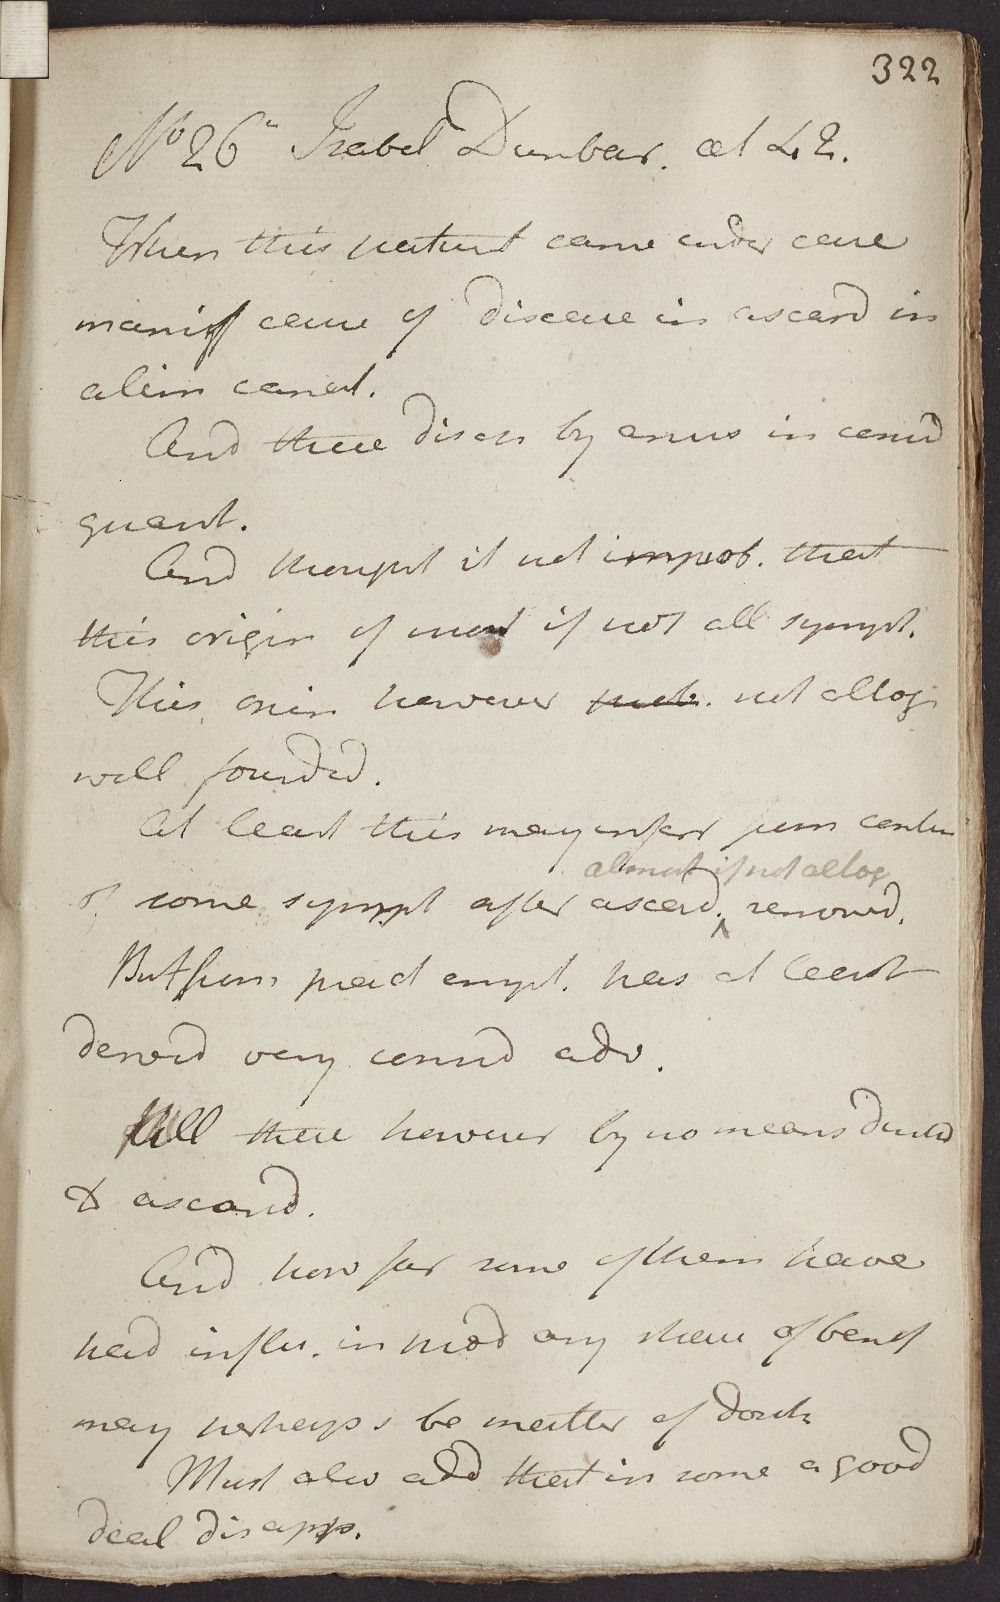 322
No 26" Isabel Dunbar. æt 42.
When this patient came under care
manif cause of disease in ascard in
alim canal.
And these disch by anus in consid
quant.
And thought it not improb. that
this origin of most if not all sympt.
This, opin however prob. not altog
well founded.
At least this may infer from contin
of some sympt after ascard.
almost if not altog
removd.
But from pract empl. has at least
derivd very consid adv.
All these however by no means directd
to ascard.
And how far some of them have
had influ. in prod any share of benef
may perhaps be matter of doub
Must also add that in some a good
deal disapp.